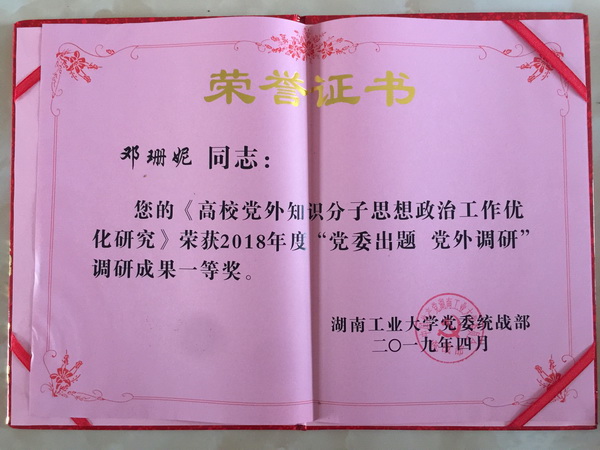 荣誉证书
邓珊妮 同志：
您的《高校党外知识分子思想政治工作优
化研究》荣获2018年度“党委出题 党外调研”
调研成果一等奖。
湖南工业大学党委统战部
二〇一九年四月